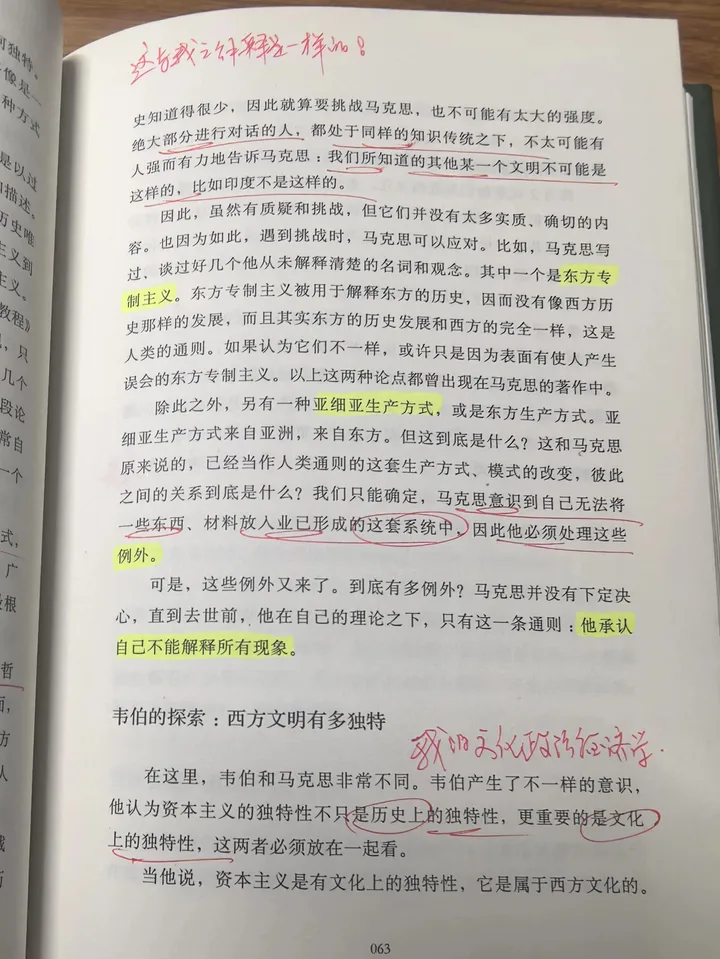 这与我之解释是一样的！
何独特。
像是一
种方式
是以过
和描述。
历史唯
主义到
主义。
教程》
只
几个
段论
常自
一个
式，
广
极根
哲
面，
方
人
史知道得很少，因此就算要挑战马克思，也不可能有太大的强度。
绝大部分进行对话的人，都处于同样的知识传统之下，不太可能有
人强而有力地告诉马克思：我们所知道的其他某一个文明不可能是
这样的，比如印度不是这样的。
因此，虽然有质疑和挑战，但它们并没有太多实质、确切的内
容。也因为如此，遇到挑战时，马克思可以应对。比如，马克思写
过、谈过好几个他从未解释清楚的名词和观念。其中一个是东方专
制主义。东方专制主义被用于解释东方的历史，因而没有像西方历
史那样的发展，而且其实东方的历史发展和西方的完全一样，这是
人类的通则。如果认为它们不一样，或许只是因为表面有使人产生
误会的东方专制主义。以上这两种论点都曾出现在马克思的著作中。
除此之外，另有一种亚细亚生产方式，或是东方生产方式。亚
细亚生产方式来自亚洲，来自东方。但这到底是什么？这和马克思
原来说的，已经当作人类通则的这套生产方式、模式的改变，彼此
之间的关系到底是什么？我们只能确定，马克思意识到自己无法将
一些东西、材料放入业已形成的这套系统中，因此他必须处理这些
例外。
可是，这些例外又来了。到底有多例外？马克思并没有下定决
心，直到去世前，他在自己的理论之下，只有这一条通则：他承认
自己不能解释所有现象。
韦伯的探索：西方文明有多独特
我的文化政治经济学.
在这里，韦伯和马克思非常不同。韦伯产生了不一样的意识，
他认为资本主义的独特性不只是历史上的独特性，更重要的是文化
上的独特性，这两者必须放在一起看。
当他说，资本主义是有文化上的独特性，它是属于西方文化的。
063